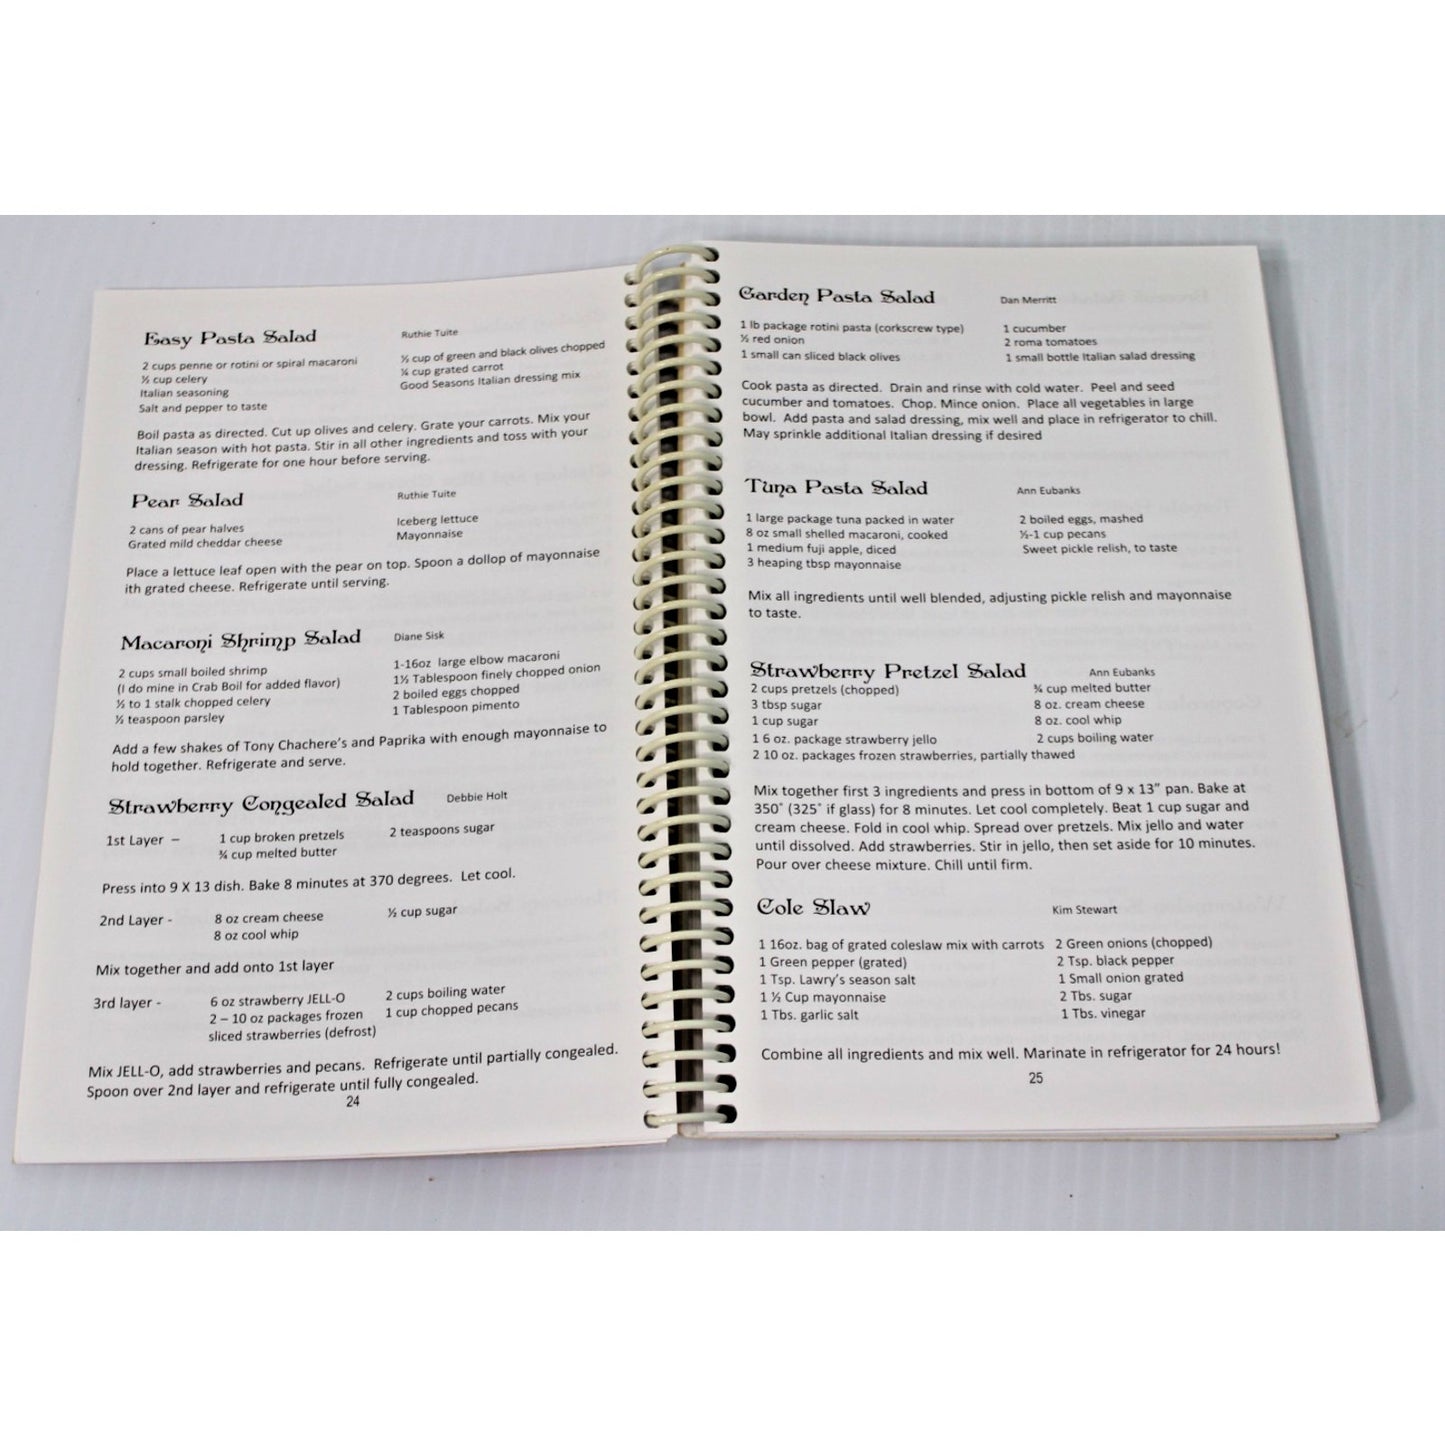 Easy Pasta Salad Ruthie Tuite
2 cups penne or rotini or spiral macaroni ½ cup of green and black olives chopped
½ cup celery ¼ cup grated carrot
Italian seasoning Good Seasons Italian dressing mix
Salt and pepper to taste
Boil pasta as directed. Cut up olives and celery. Grate your carrots. Mix your
Italian season with hot pasta. Stir in all other ingredients and toss with your
dressing. Refrigerate for one hour before serving.
Pear Salad Ruthie Tuite
2 cans of pear halves Iceberg lettuce
Grated mild cheddar cheese Mayonnaise
Place a lettuce leaf open with the pear on top. Spoon a dollop of mayonnaise
ith grated cheese. Refrigerate until serving.
Macaroni Shrimp Salad Diane Sisk
2 cups small boiled shrimp 1-16oz large elbow macaroni
(I do mine in Crab Boil for added flavor) 1½ Tablespoon finely chopped onion
½ to 1 stalk chopped celery 2 boiled eggs chopped
½ teaspoon parsley 1 Tablespoon pimento
Add a few shakes of Tony Chachere's and Paprika with enough mayonnaise to
hold together. Refrigerate and serve.
Strawberry Congealed Salad Debbie Holt
1st Layer – 1 cup broken pretzels 2 teaspoons sugar
¾ cup melted butter
Press into 9 X 13 dish. Bake 8 minutes at 370 degrees. Let cool.
2nd Layer - 8 oz cream cheese ½ cup sugar
8 oz cool whip
Mix together and add onto 1st layer
3rd layer - 6 oz strawberry JELL-O 2 cups boiling water
2 – 10 oz packages frozen 1 cup chopped pecans
sliced strawberries (defrost)
Mix JELL-O, add strawberries and pecans. Refrigerate until partially congealed.
Spoon over 2nd layer and refrigerate until fully congealed.
24
Garden Pasta Salad Dan Merritt
1 lb package rotini pasta (corkscrew type) 1 cucumber
½ red onion 2 roma tomatoes
1 small can sliced black olives 1 small bottle Italian salad dressing
Cook pasta as directed. Drain and rinse with cold water. Peel and seed
cucumber and tomatoes. Chop. Mince onion. Place all vegetables in large
bowl. Add pasta and salad dressing, mix well and place in refrigerator to chill.
May sprinkle additional Italian dressing if desired
Tuna Pasta Salad Ann Eubanks
1 large package tuna packed in water 2 boiled eggs, mashed
8 oz small shelled macaroni, cooked ½-1 cup pecans
1 medium fuji apple, diced Sweet pickle relish, to taste
3 heaping tbsp mayonnaise
Mix all ingredients until well blended, adjusting pickle relish and mayonnaise
to taste.
Strawberry Pretzel Salad Ann Eubanks
2 cups pretzels (chopped) ¾ cup melted butter
3 tbsp sugar 8 oz. cream cheese
1 cup sugar 8 oz. cool whip
1 6 oz. package strawberry jello 2 cups boiling water
2 10 oz. packages frozen strawberries, partially thawed
Mix together first 3 ingredients and press in bottom of 9 x 13" pan. Bake at
350˚ (325˚ if glass) for 8 minutes. Let cool completely. Beat 1 cup sugar and
cream cheese. Fold in cool whip. Spread over pretzels. Mix jello and water
until dissolved. Add strawberries. Stir in jello, then set aside for 10 minutes.
Pour over cheese mixture. Chill until firm.
Cole Slaw Kim Stewart
1 16oz. bag of grated coleslaw mix with carrots 2 Green onions (chopped)
1 Green pepper (grated) 2 Tsp. black pepper
1 Tsp. Lawry's season salt 1 Small onion grated
1 ½ Cup mayonnaise 2 Tbs. sugar
1 Tbs. garlic salt 1 Tbs. vinegar
Combine all ingredients and mix well. Marinate in refrigerator for 24 hours!
25